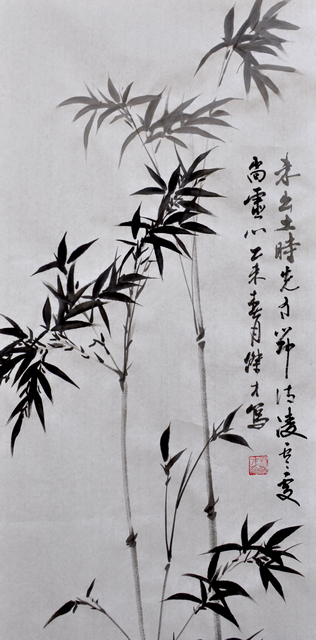 未出土時先有節浩凌雲處
尚虛心乙未春月継才寫